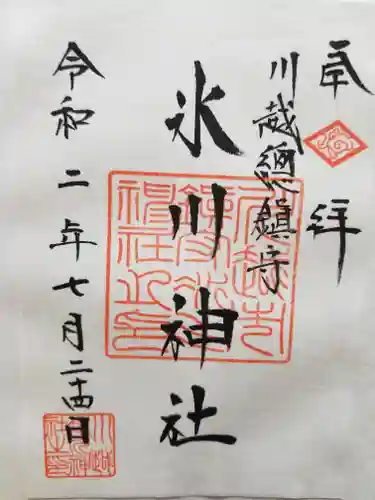 奉拝
川越總鎮守
氷川神社
令和二年七月二十四日